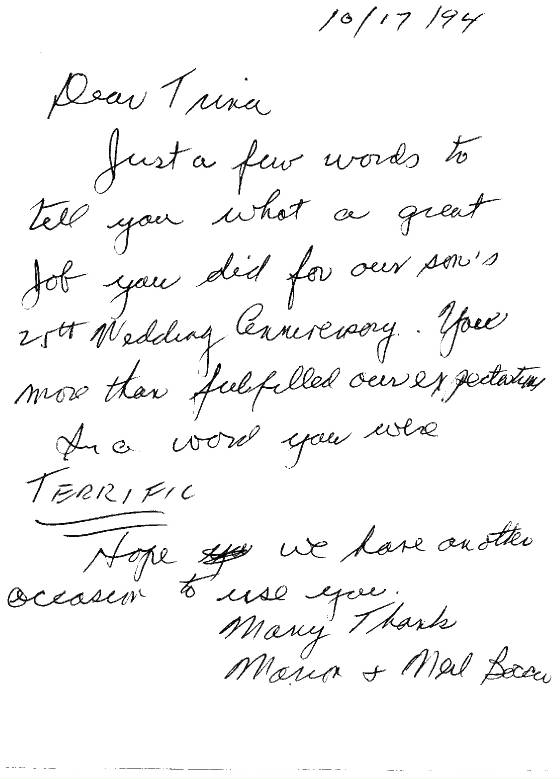 10/17/94
Dear Trina
Just a few words to
tell you what a great
Job you did for our son's
25th Wedding Anniversary. You
more than fulfilled our expectations
In a word you were
TERRIFIC
Hope we have another
occasion to use you.
Many Thanks
Marion &